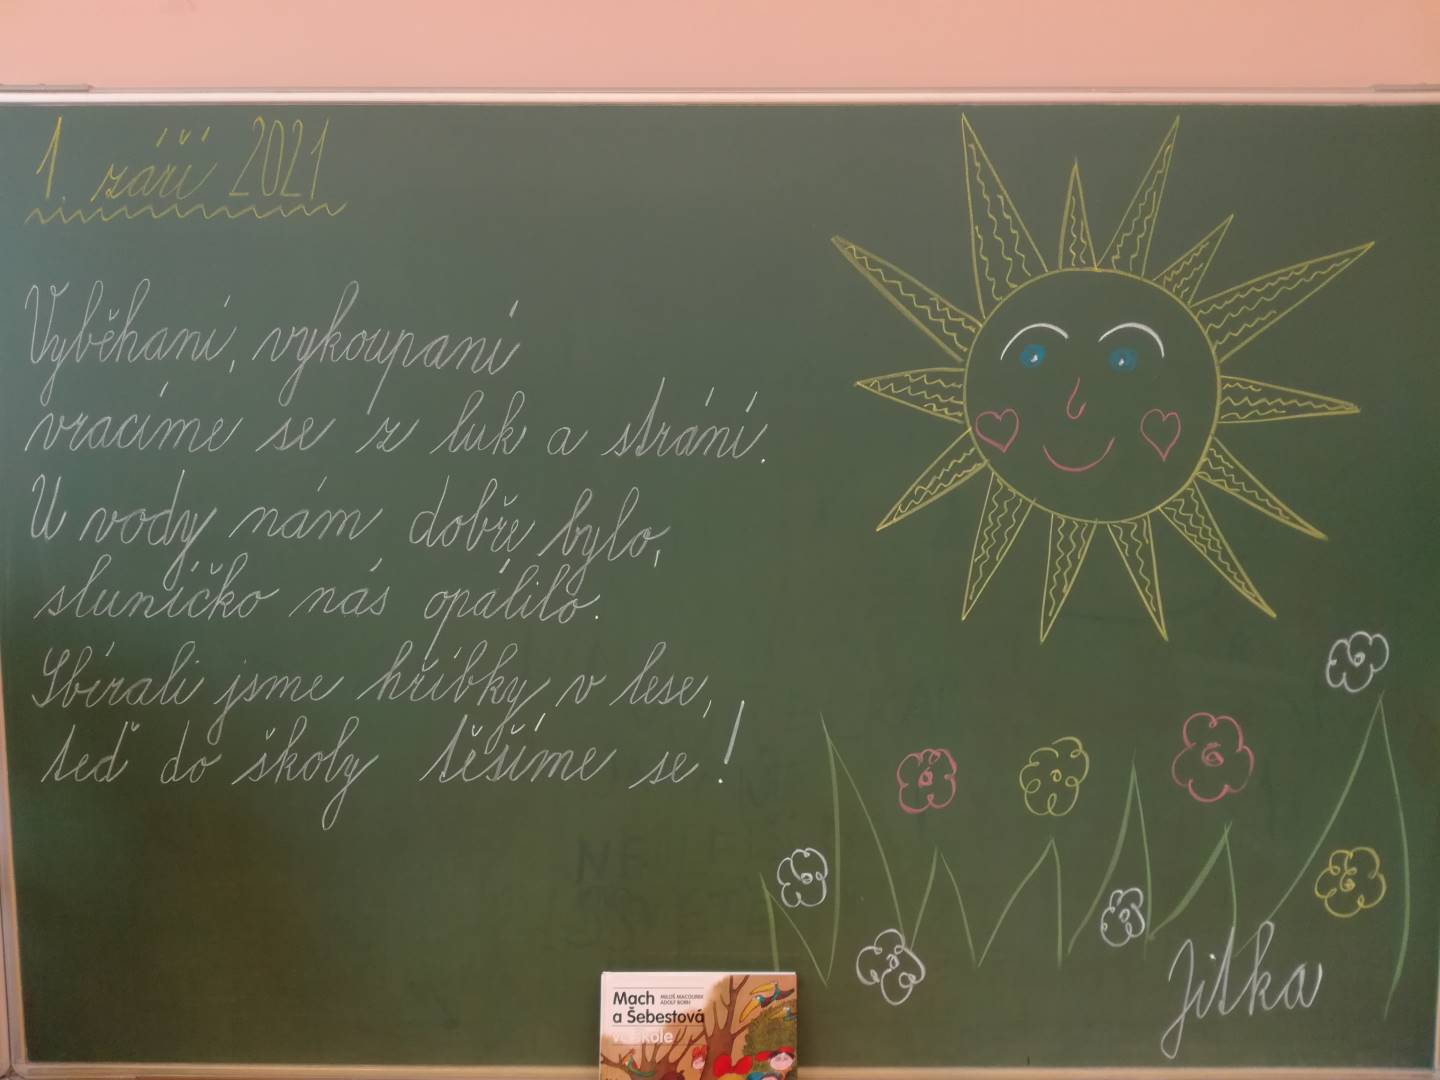 1. září 2021
Vyběhaní, vykoupaní
vracíme se z luk a strání.
U vody nám dobře bylo,
sluníčko nás opálilo.
Sbírali jsme hříbky v lese,
teď do školy těšíme se!
Jitka
Mach
a Šebestová
MILOŠ MACOUREK
ADOLF BORN
ve škole